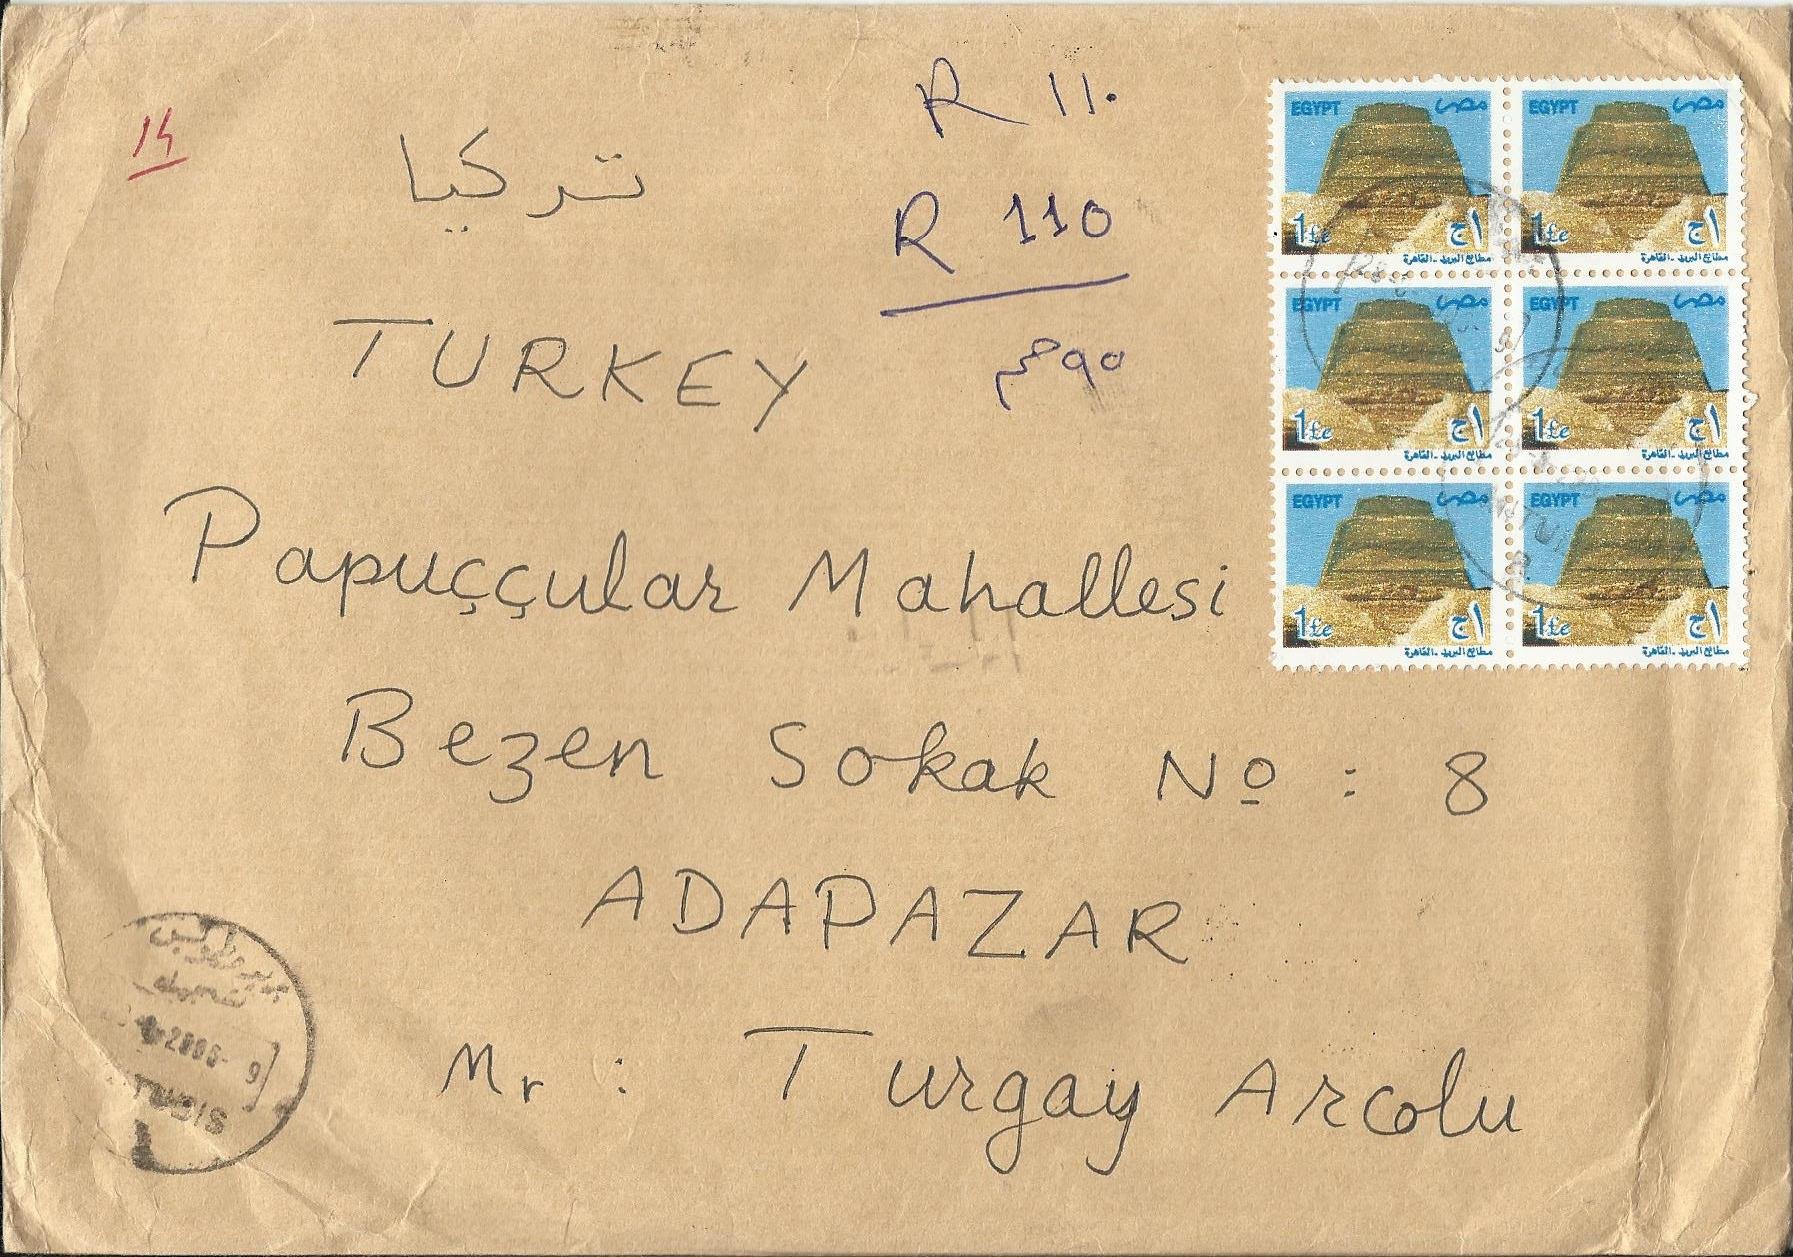 14
R 11.
R 110
تركيا
TURKEY
Papuççular Mahallesi
Bezen Sokak No : 8
ADAPAZAR
Mr : Turgay Arcolu
EGYPT مصر
1£e ١ج
مطابع البريد - القاهرة
EGYPT مصر
1£e ١ج
مطابع البريد - القاهرة
EGYPT مصر
1£e ١ج
مطابع البريد - القاهرة
EGYPT مصر
1£e ١ج
مطابع البريد - القاهرة
EGYPT مصر
1£e ١ج
مطابع البريد - القاهرة
EGYPT مصر
1£e ١ج
مطابع البريد - القاهرة